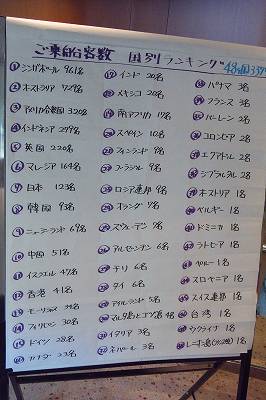 ご乗船客数 国別ランキング
① シンガポール 961名
② オーストラリア 729名
③ アメリカ合衆国 320名
④ インドネシア 279名
⑤ 英国 220名
⑥ マレーシア 164名
⑦ 日本 123名
⑧ 韓国 93名
⑨ ニュージーランド 69名
⑩ 中国 51名
⑪ イスラエル 47名
⑫ 香港 41名
⑬ モーリシャス 38名
⑭ フィリピン 30名
⑮ ドイツ 28名
⑯ カナダ 23名
⑰ インド 20名
メキシコ 20名
南アフリカ 17名
スペイン 10名
フィンランド 9名
ブラジル 9名
ロシア連邦 9名
オランダ 7名
スウェーデン 7名
アルゼンチン 6名
チリ 6名
タイ 6名
アイルランド 5名
イタリア 3名
ネパール 3名
パナマ 3名
フランス 3名
バーレーン 2名
コロンビア 2名
エクアドル 2名
ジブラルタル 2名
オーストリア 1名
ベルギー 1名
ドミニカ 1名
ラトビア 1名
ペルー 1名
スロベニア 1名
スイス連邦 1名
台湾 1名
ウクライナ 1名